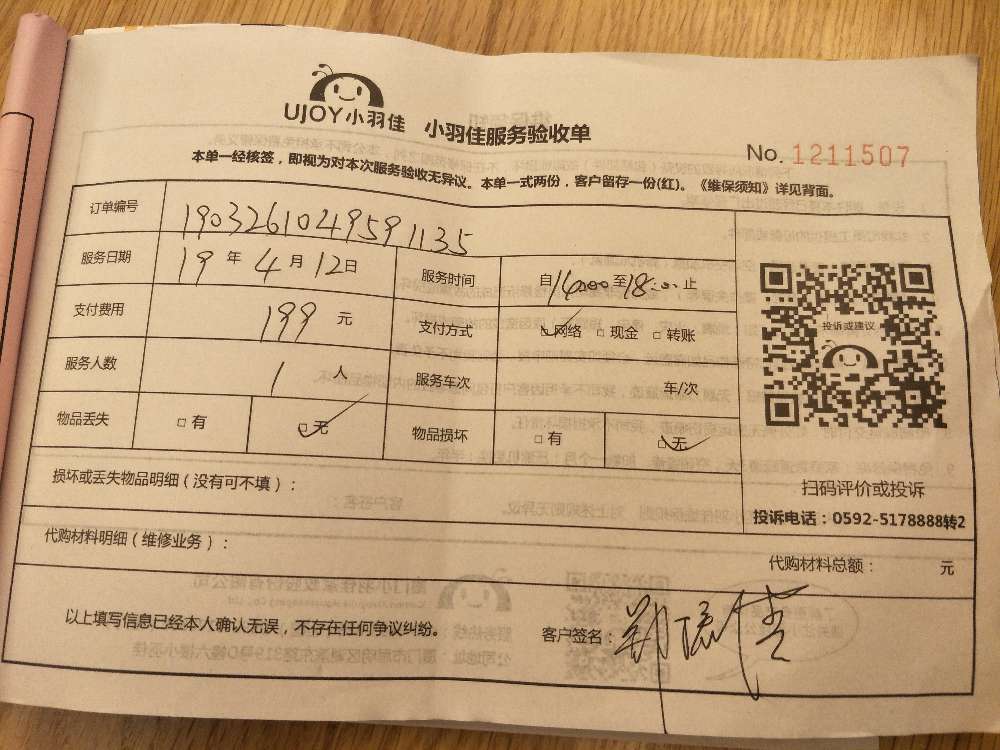 UJOY小羽佳 小羽佳服务验收单
No. 1211507
本单一经核签，即视为对本次服务验收无异议。本单一式两份，客户留存一份(红)。《维保须知》详见背面。
订单编号 1903261049591135
服务日期 19 年 4 月 12 日 服务时间 自 14:00 至 18:00 止
支付费用 199 元 支付方式 网络 □ 现金 □ 转账
投诉或建议
服务人数 1 人 服务车次 车/次
物品丢失 □ 有 □ 无 物品损坏 □ 有 □ 无
损坏或丢失物品明细（没有可不填）：
扫码评价或投诉
投诉电话：0592-5178888转2
代购材料明细（维修业务）： 代购材料总额： 元
以上填写信息已经本人确认无误，不存在任何争议纠纷。 客户签名：